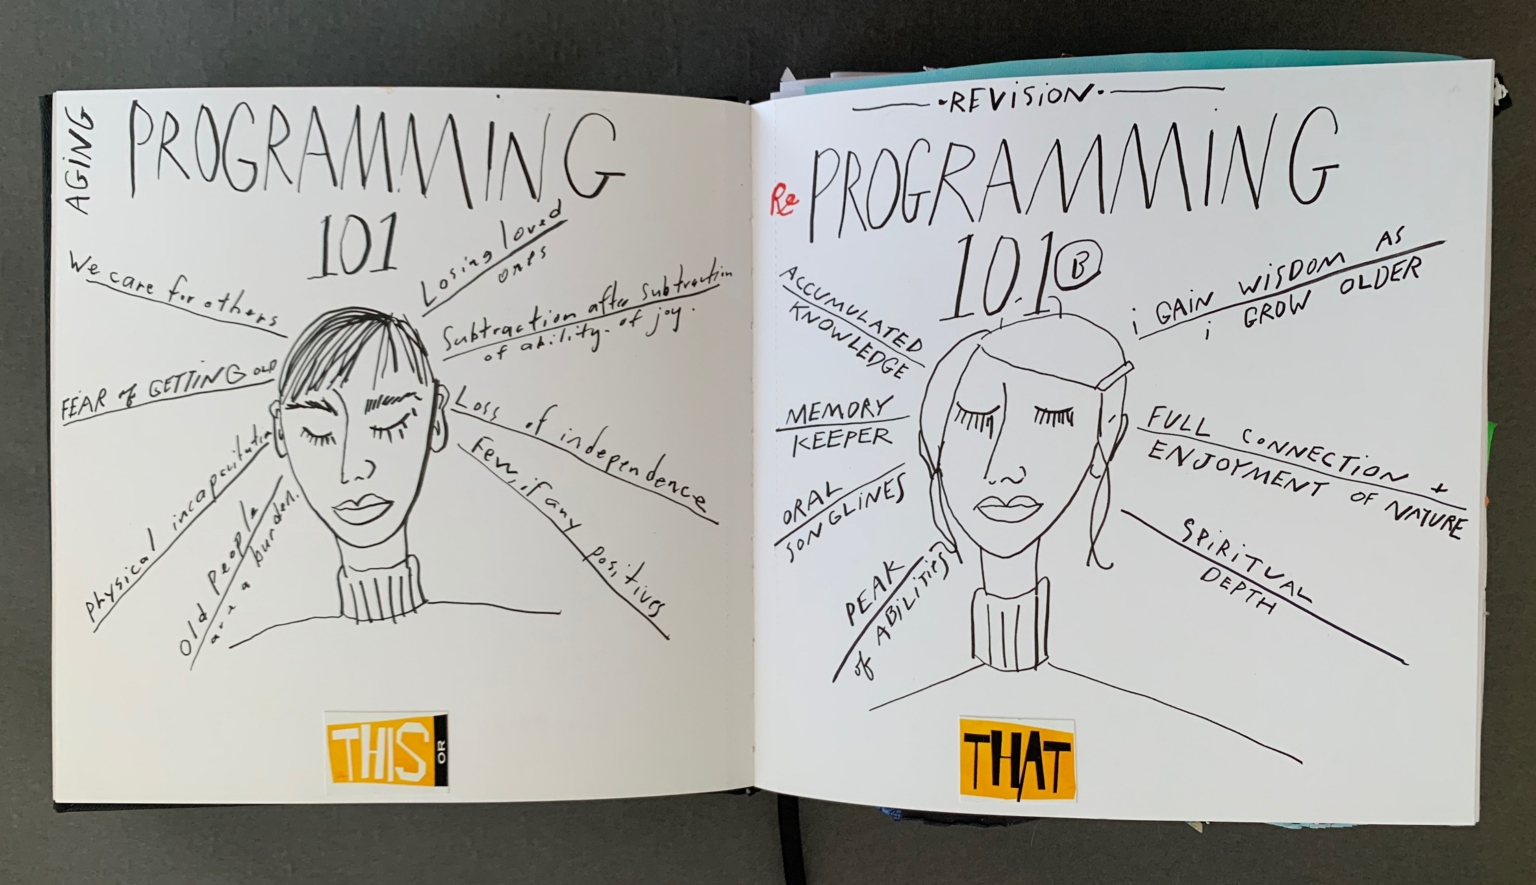 AGING
PROGRAMMING
101
We care for others
FEAR of GETTING OLD
physical incapacitation
Old people
are a burden.
Losing loved
ones
Subtraction after subtraction
of ability. of joy.
Loss of independence
Few, if any positives
THIS OR
-REVISION-
Re PROGRAMMING
101 B
ACCUMULATED
KNOWLEDGE
MEMORY
KEEPER
ORAL
SONGLINES
PEAK
of ABILITIES
i GAIN WISDOM AS
i GROW OLDER
FULL CONNECTION +
ENJOYMENT OF NATURE
SPIRITUAL
DEPTH
THAT